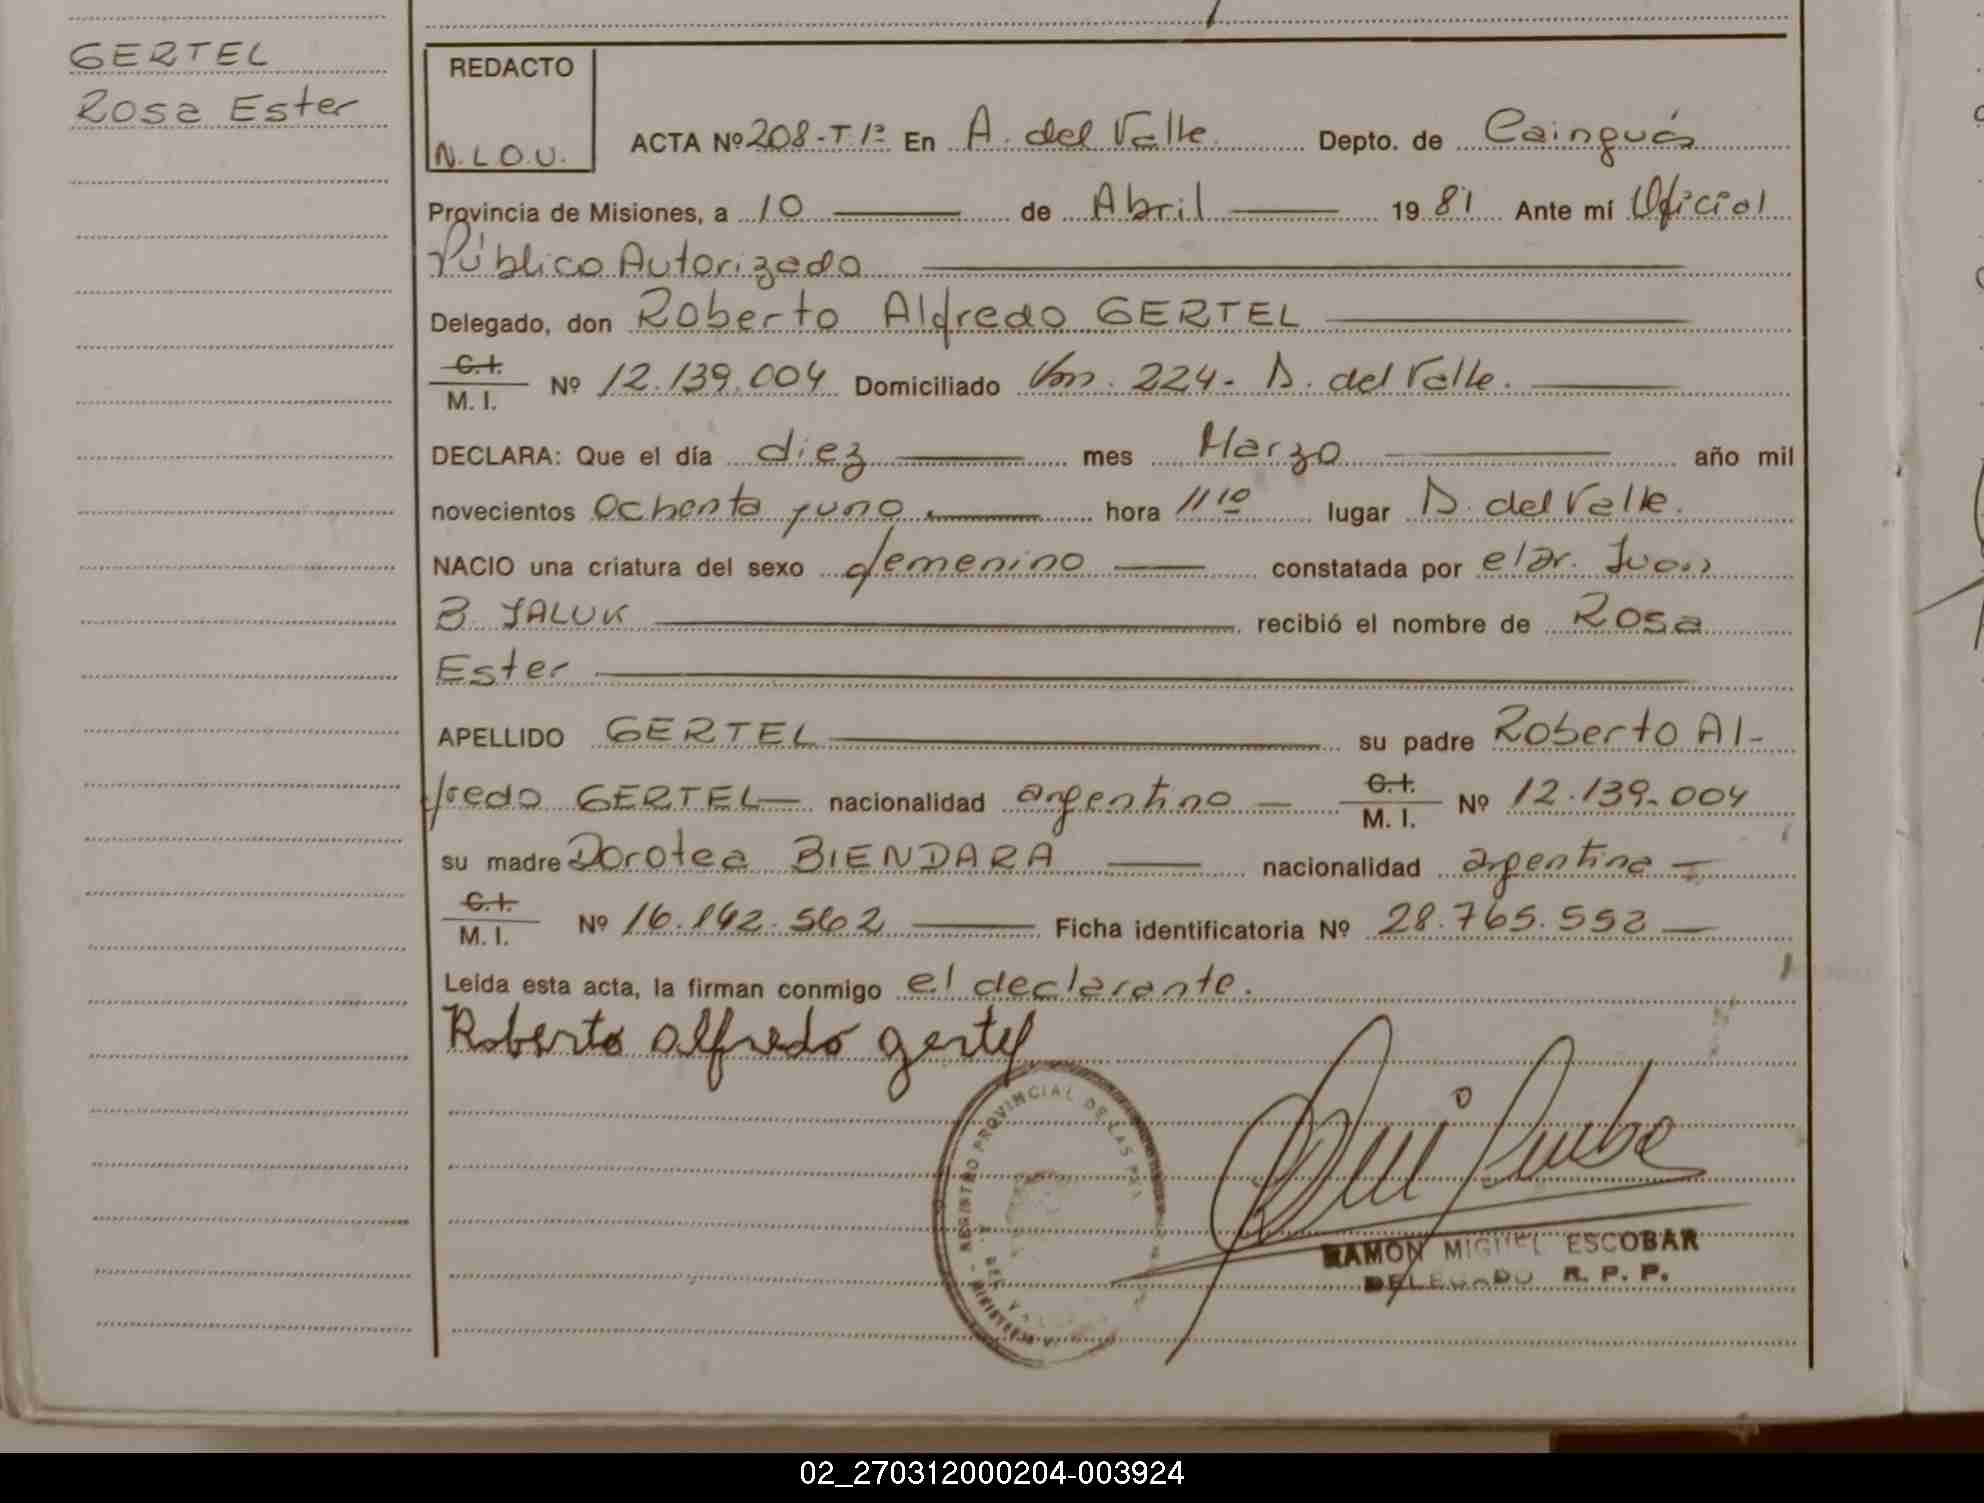 GERTEL
Rosa Ester
REDACTO
N.L.O.U.
ACTA Nº 208-T.1º En A. del Valle. Depto. de Cainguás
Provincia de Misiones, a 10 de Abril 1981 Ante mí Oficial
Público Autorizado
Delegado, don Roberto Alfredo GERTEL
C.I.
M.I. Nº 12.139.004 Domiciliado Km. 224- A. del Valle.
DECLARA: Que el día diez mes Marzo año mil
novecientos Ochenta y uno hora 11 10 lugar A. del Valle.
NACIO una criatura del sexo femenino constatada por el Dr. Juan
B. JALUK recibió el nombre de Rosa
Ester
APELLIDO GERTEL su padre Roberto Al-
fredo GERTEL nacionalidad argentino C.I.
M.I. Nº 12.139.004
su madre Dorotea BIENDARA nacionalidad argentina
C.I.
M.I. Nº 16.142.562 Ficha identificatoria Nº 28.765.552
Leída esta acta, la firman conmigo el declarante.
Roberto alfredo gertel
REGISTRO PROVINCIAL DE LAS
RAMON MIGUEL ESCOBAR
DELEGADO R. P. P.
02_270312000204-003924